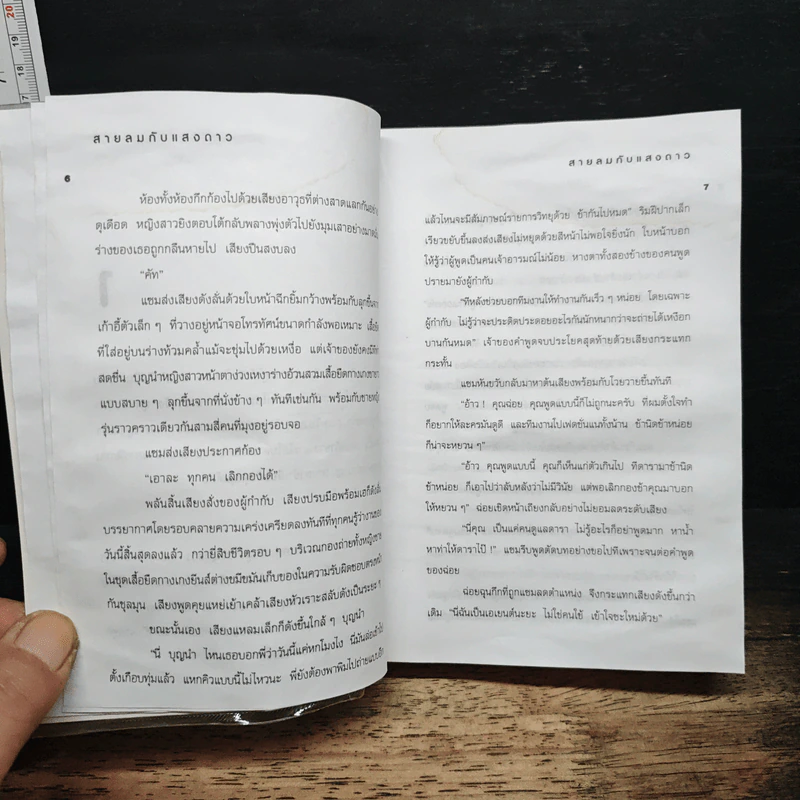 20
19
18
สายลมกับแสงดาว
6
ห้องทั้งห้องกึกก้องไปด้วยเสียงอาวุธที่ต่างสาดแลกกันอย่าง
ดุเดือด หญิงสาวยิงตอบโต้กลับพลางพุ่งตัวไปยังมุมเสาอย่าง
ร่างของเธอถูกกลืนหายไป เสียงปืนสงบลง
“คัท”
แซมส่งเสียงดังลั่นด้วยใบหน้าฉีกยิ้มกว้างพร้อมกับลุกขึ้น
เก้าอี้ตัวเล็ก ๆ ที่วางอยู่หน้าจอโทรทัศน์ขนาดกำลังพอเหมาะ เสื้อยืด
ที่ใส่อยู่บนร่างท้วมคล้ำแม้จะชุ่มไปด้วยเหงื่อ แต่เจ้าของยังคง
สดชื่น บุญนำหญิงสาวหน้าตาง่วงเหงาร่างอ้วนสวมเสื้อยืดกางเกง
แบบสบาย ๆ ลุกขึ้นจากที่นั่งข้าง ๆ ทันทีเช่นกัน พร้อมกับชาย
รุ่นราวคราวเดียวกันสามสี่คนที่มุงอยู่รอบจอ
แซมส่งเสียงประกาศก้อง
“เอาละ ทุกคน เลิกกองได้”
พลันสิ้นเสียงสั่งของผู้กำกับ เสียงปรบมือพร้อมเฮก็ดังขึ้น
บรรยากาศโดยรอบคลายความเคร่งเครียดลงทันทีที่ทุกคนรู้ว่างาน
วันนี้สิ้นสุดลงแล้ว กว่ายี่สิบชีวิตรอบ ๆ บริเวณกองถ่ายทั้งหญิงชาย
ในชุดเสื้อยืดกางเกงยีนส์ต่างขมีขมันเก็บของในความรับผิดชอบตรงหน้า
กันชุลมุน เสียงพูดคุยแหย่เย้าเคล้าเสียงหัวเราะสลับดังเป็นระยะ ๆ
ขณะนั้นเอง เสียงแหลมเล็กก็ดังขึ้นใกล้ ๆ บุญนำ
“นี่ บุญนำ ไหนเธอบอกพี่ว่าวันนี้แค่หกโมงไง นี่มันล่อเข้าไป
ตั้งเกือบทุ่มแล้ว แหกคิวแบบนี้ไม่ไหวนะ พี่ยังต้องพาพิมไปถ่ายแบบอีก
สายลมกับแสงดาว
7
แล้วไหนจะมีสัมภาษณ์รายการวิทยุด้วย ช้ากันไปหมด” ริมฝีปากเล็ก
เรียวขยับขึ้นลงส่งเสียงไม่หยุดด้วยสีหน้าไม่พอใจยิ่งนัก ใบหน้าบอก
ให้รู้ว่าผู้พูดเป็นคนเจ้าอารมณ์ไม่น้อย หางตาทั้งสองข้างของคนพูด
ปรายมายังผู้กำกับ
“ทีหลังช่วยบอกทีมงานให้ทำงานกันเร็ว ๆ หน่อย โดยเฉพาะ
ผู้กำกับ ไม่รู้ว่าจะประดิดประดอยอะไรกันนักหนากว่าจะถ่ายได้เหงือก
บานกันหมด” เจ้าของคำพูดจบประโยคสุดท้ายด้วยเสียงกระแทก
กระทั้น
แซมหันขวับกลับมาหาต้นเสียงพร้อมกับโวยวายขึ้นทันที
“อ้าว ! คุณฉ่อย คุณพูดแบบนี้ก็ไม่ถูกนะครับ ที่ผมตั้งใจทำ
ก็อยากให้ละครมันดูดี และทีมงานไปเฟดชันแนทั้งนั้น ช้านิดช้าหน่อย
ก็น่าจะหยวน ๆ”
“อ้าว คุณพูดแบบนี้ คุณก็เห็นแก่ตัวเกินไป ทีดารามาช้านิด
ช้าหน่อย ก็เอาไปว่าลับหลังว่าไม่มีวินัย แต่พอเลิกกองช้าคุณมาบอก
ให้หยวน ๆ” ฉ่อยเชิดหน้าเถียงกลับอย่างไม่ยอมลดระดับเสียง
“นี่คุณ เป็นแค่คนดูแลดารา ไม่รู้อะไรก็อย่าพูดมาก หาน้ำ
หาท่าให้ดาราไป๊ !” แซมรีบพูดตัดบทอย่างขอไปทีเพราะจนต่อคำพูด
ของฉ่อย
ฉ่อยฉุนกึกที่ถูกแซมลดตำแหน่ง จึงกระแทกเสียงดังขึ้นกว่า
เดิม “นี่ฉันเป็นเอเยนต์นะยะ ไม่ใช่คนใช้ เข้าใจซะใหม่ด้วย”